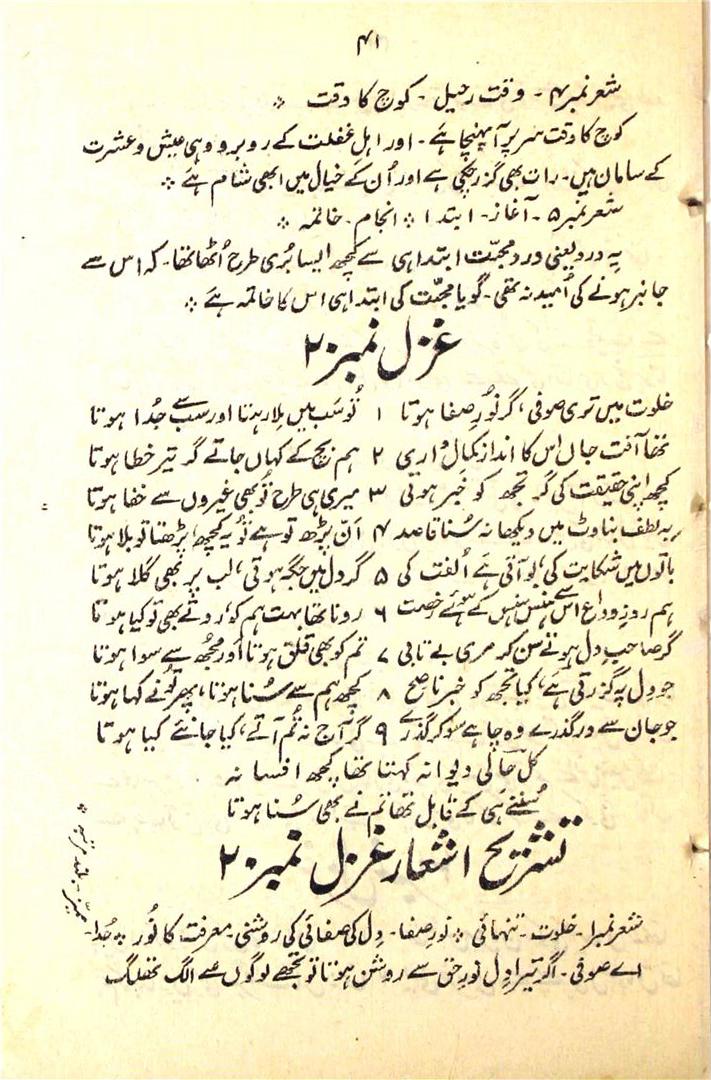 ۴۱
شعر نمبر ۴ - وقت رحیل - کوچ کا وقت ؞
کوچ کا وقت سر پر آ پہنچا ہے - اور اہل غفلت کے روبرو وہی عیش و عشرت
کے سامان ہیں - رات بھی گذر چکی ہے اور اُن کے خیال میں ابھی شام ہے ؞
شعر نمبر ۵ - آغاز - ابتدا ؞ انجام - خاتمہ ؞
یہ درد یعنی دردِ محبّت ابتدا ہی سے کچھ ایسا بُری طرح اُٹھا تھا - کہ اس سے
جانبر ہونے کی اُمید نہ تھی - گویا محبّت کی ابتدا ہی اس کا خاتمہ ہے ؞
غزل نمبر ۲۰
خلوت میں تری صوفی، گر نُورِ صفا ہوتا ۱ تُو سَب میں مِلا رہتا اور سب سے جُدا ہوتا
تھا آفت جاں اس کا انداز کماں داری ۲ ہم بچ کے کہاں جاتے گر تیر خطا ہوتا
کچھ اپنی حقیقت کی گر تجھ کو خبر ہوتی ۳ میری ہی طرح تُو بھی غیروں سے خفا ہوتا
یہ لطف بناوٹ میں دیکھا نہ سُنا قاصد ۴ اَن پڑھ تو ہے تُو یہ کچھ، پڑھتا تو بلا ہوتا
باتوں میں شکایت کی، بُو آتی ہے اُلفت کی ۵ گر دل میں جگہ ہوتی، لب پر بھی گلا ہوتا
ہم روزِ وداع اس سے ہنس ہنس کے ہوئے رخصت ۶ رونا تھا بہت ہم کو، روتے بھی تو کیا ہوتا
گر صاحبِ دل ہوتے سُن کر مری بے تابی ۷ تم کو بھی قلق ہوتا اور مجھ سے سوا ہوتا
جو دل پہ گزرتی ہے، کیا تجھ کو خبر ناصح ۸ کچھ ہم سے سُنا ہوتا، پھر تُو نے کہا ہوتا
جو جان سے درگذرے وہ چاہے سو کر گذرے ۹ گر آج نہ تُم آتے، کیا جانئے کیا ہوتا
کل حالی دیوانہ کہتا تھا کچھ افسانہ
سُننے ہی کے قابل تھا تم نے بھی سُنا ہوتا
تشریح اشعار غزل نمبر ۲۰
شعر نمبر ۱ - خلوت - تنہائی ؞ نورِ صفا - دِل کی صفائی کی روشنی - معرفت کا نُور ؞ جُدا -
اے صوفی - اگر تیرا دِل نورِ حق سے روشن ہوتا تو تجھے لوگوں سے الگ تھلگ